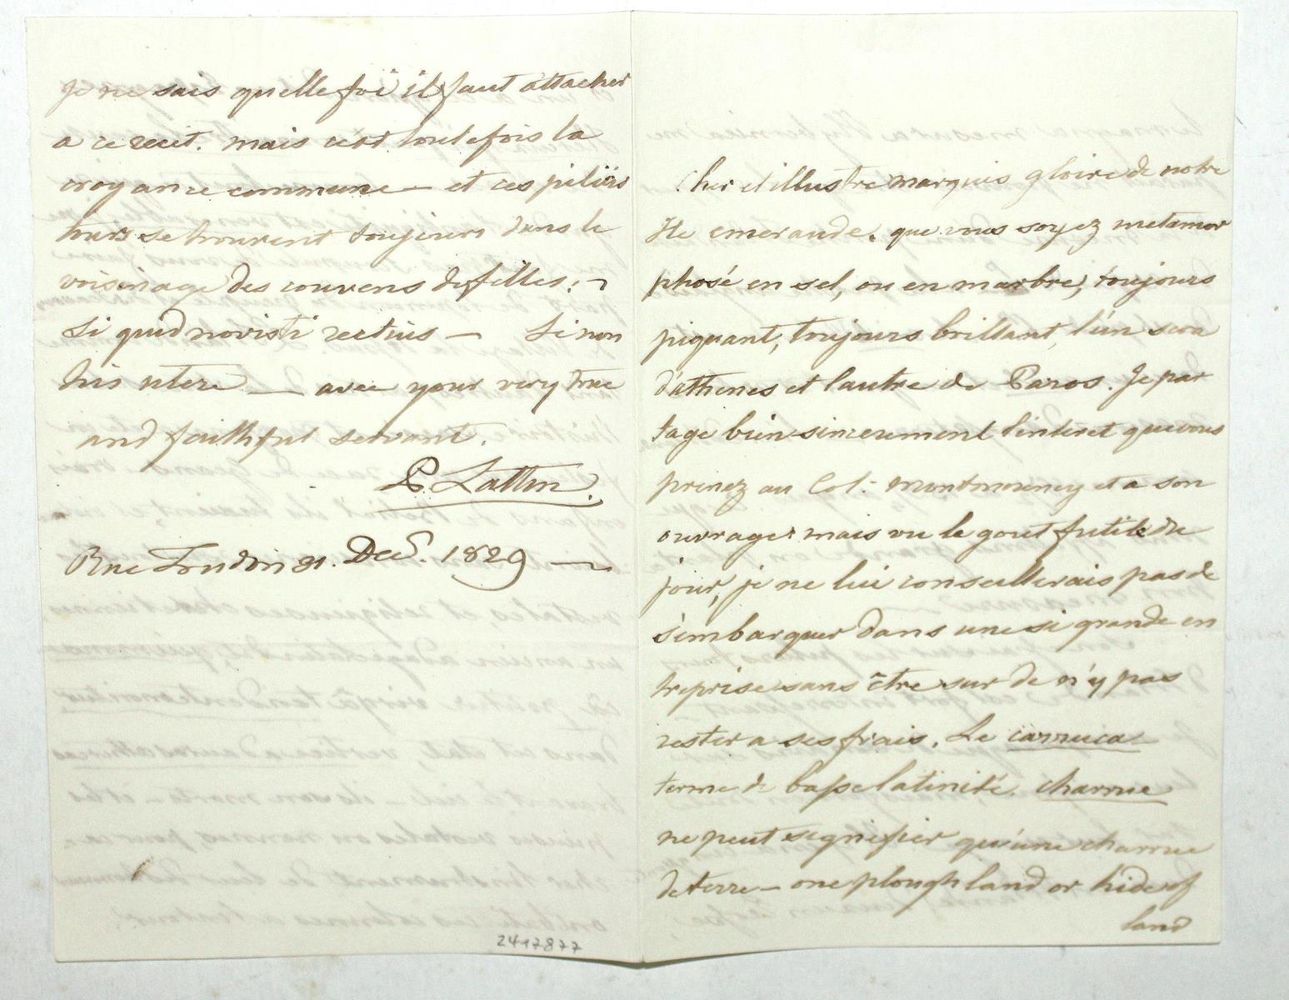 Cher et illustre marquis gloire de notre
Ile emeraude. que vous soyez metamor
phosé en sel, ou en marbre, toujours
piquant, toujours brillant, l'un sera
d'athenes et l'autre de Paros. Je par
tage bien sincerement l'interet que vous
prenez au Col: Montmorency et a son
ouvrage. mais vu le gout futile du
jour, je ne lui conseillerais pas de
s'embarquer dans une si grande en
treprise sans être sur de n'y pas
rester a ses frais. Le carruca
terme de basse latinité. charrue
ne peut signifier qu'une charrue
de terre — one plough land or hide of
land
Je ne sais quelle foi il faut attacher
a ce recit. mais c'est toutefois la
croyance commune — et ces piliers
tours se trouvent toujours dans le
voisinage des couvens de filles. —
Si quid novisti rectius — Si non
his utere — avec your very true
and faithful servant.
P. Lattin.
Rue Londres 31. Dec. 1829 —
2417877